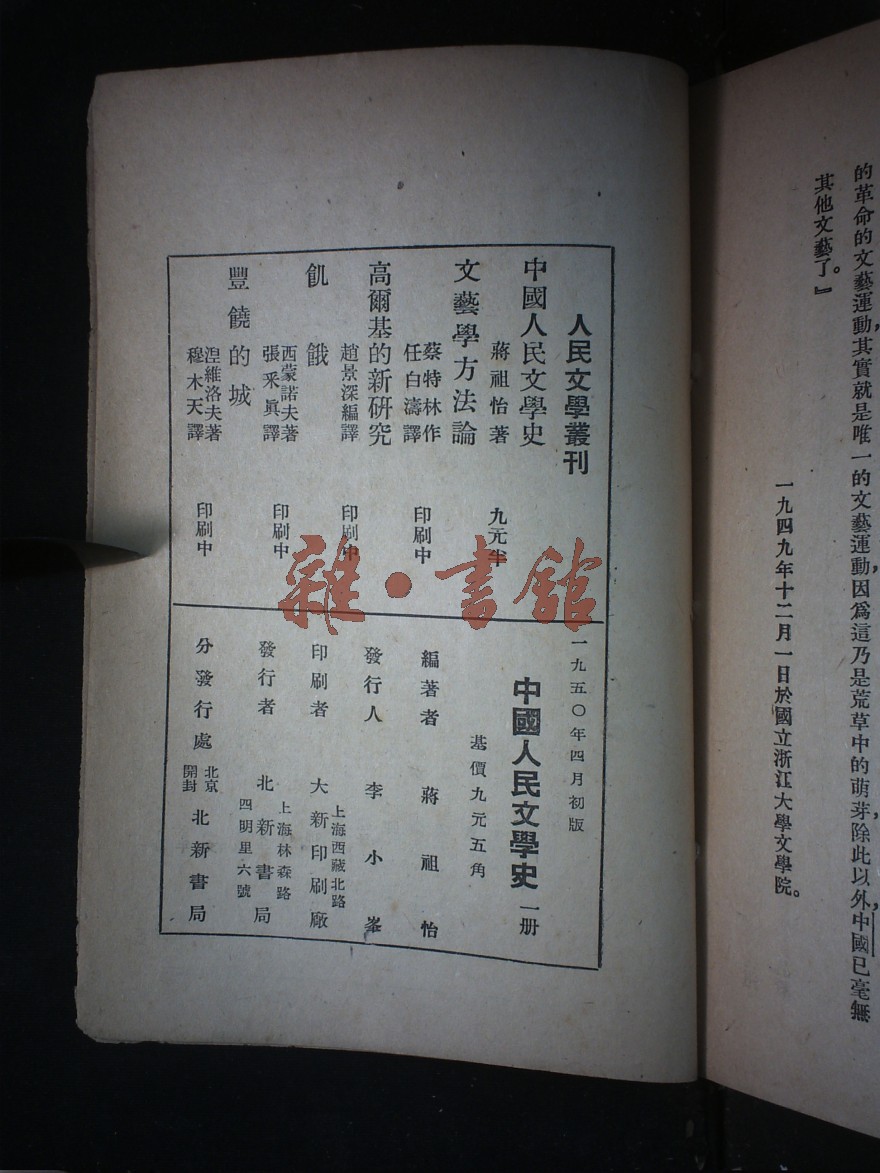 的革命的文藝運動，其實就是唯一的文藝運動，因爲這乃是荒草中的萌芽，除此以外，中國已毫無
其他文藝了。』
一九四九年十二月一日於國立浙江大學文學院。
人民文學叢刊
中國人民文學史
蔣祖怡著 九元半
文藝學方法論
蔡特林作
任白濤譯 印刷中
高爾基的新研究
趙景深編譯 印刷中
飢餓
西蒙諾夫著
張釆眞譯 印刷中
豐饒的城
涅維洛夫著
穆木天譯 印刷中
一九五〇年四月初版
中國人民文學史 一册
基價九元五角
編著者 蔣祖怡
發行人 李小峯
上海西藏北路
印刷者 大新印刷廠
上海林森路
發行者 北新書局
四明里六號
分發行處 北京 開封 北新書局
雜·書館